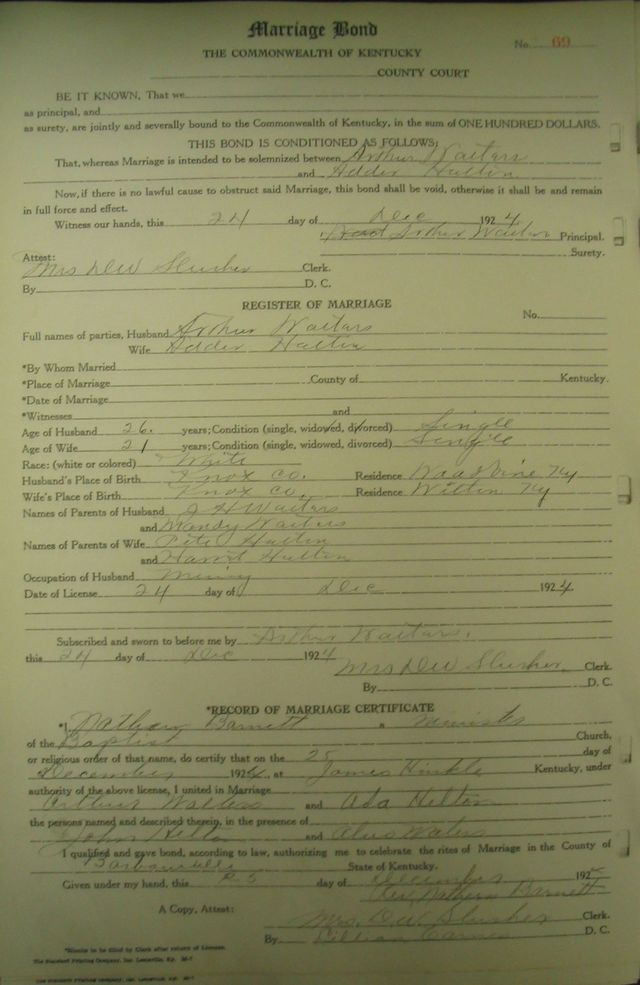 Marriage Bond
No. 69
THE COMMONWEALTH OF KENTUCKY
COUNTY COURT
BE IT KNOWN, That we
as principal, and
as surety, are jointly and severally bound to the Commonwealth of Kentucky, in the sum of ONE HUNDRED DOLLARS.
THIS BOND IS CONDITIONED AS FOLLOWS:
That, whereas Marriage is intended to be solemnized between Arthur Waiters
and Adder Halten
Now, if there is no lawful cause to obstruct said Marriage, this bond shall be void, otherwise it shall be and remain
in full force and effect.
Witness our hands, this 24 day of Dec 1924
Arthur Principal.
Surety.
Attest:
Mrs D W Slusher Clerk.
By D. C.
REGISTER OF MARRIAGE
No.
Full names of parties, Husband Arthur Waitars
Wife Adder Halten
*By Whom Married
*Place of Marriage County of Kentucky.
*Date of Marriage
*Witnesses and
Age of Husband 26. years; Condition (single, widowed, divorced) Single
Age of Wife 21 years; Condition (single, widowed, divorced) Single
Race: (white or colored) White
Husband's Place of Birth Knox Co. Residence Ky
Wife's Place of Birth Knox Co. Residence Ky
Names of Parents of Husband J H Waitars
and Mandy Waiters
Names of Parents of Wife Pete Halten
and Halten
Occupation of Husband Mining
Date of License 24 day of Dec 1924.
Subscribed and sworn to before me by Arthur Waitars.
this 24 day of Dec 1924
Mrs D W Slusher Clerk.
By D. C.
*RECORD OF MARRIAGE CERTIFICATE
*I, Nathan Barnett a Minister
of the Baptist Church,
or religious order of that name, do certify that on the 25 day of
December 1924, at James Hinkle Kentucky, under
authority of the above license, I united in Marriage
Arthur Walters and Ada Helton
the persons named and described therein, in the presence of
John and
I qualified and gave bond, according to law, authorizing me to celebrate the rites of Marriage in the County of
Barbourville State of Kentucky.
Given under my hand, this 25 day of December 192
Rev Nathan Barnett
A Copy, Attest:
Mrs. D W Slusher Clerk.
By Lillian D. C.
*Blanks to be filled by Clerk after return of License.
The Standard Printing Company, Inc. Louisville, Ky. 26-7
THE STANDARD PRINTING COMPANY, INC. LOUISVILLE, KY. 26-7